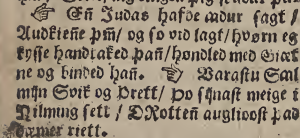 ☞ Eñ Judas hafde adur sagt /
Audkieñe þm̃ / og so vid lagt / hvørn eg
kysse handtaked þañ / hondled med Giæt
ne og binded hañ. ☞ Varastu Saal
mijn Svik og Prett / þo sijnast meige i
Vilmung sett / DRotteñ augliooſt þad
dæmer riett.